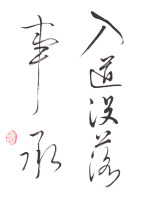 入道没落
事承